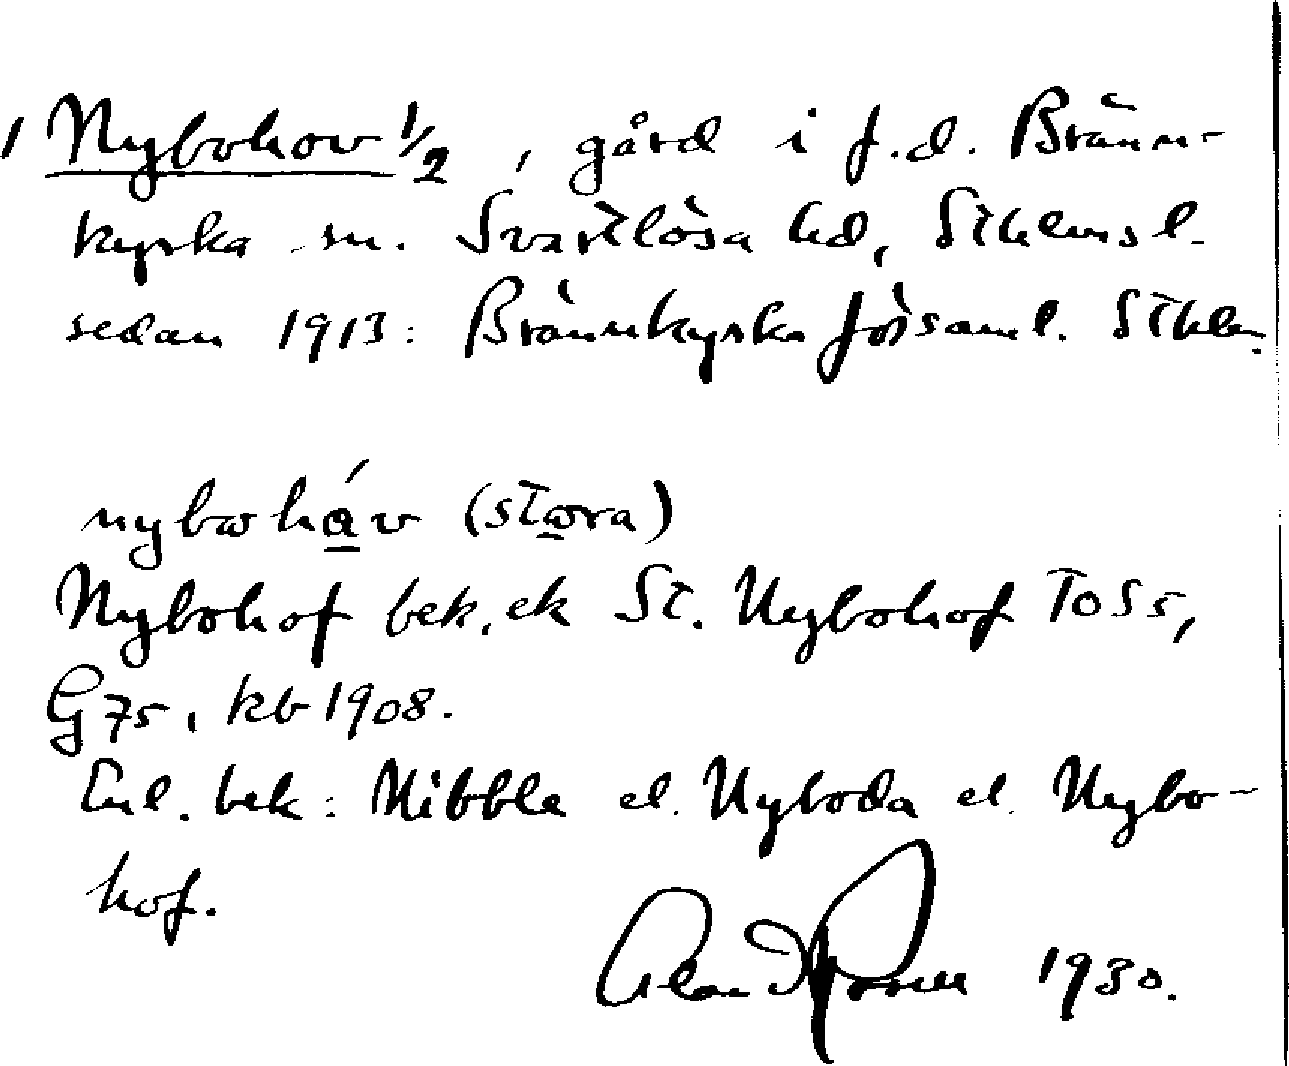 1 Nybohov 1/2, gård i f.d. Bränn-
kyrka sn. Svartlösa hd, Sthlmsl.
sedan 1913: Brännkyrka förs­aml. Sthlm.
nybωhá̱v (stω̱ra)
Nybohof bek, ek St. Nybohof ToS5,
G75, kb 1908.
Enl. bek: Nibble el. Nyboda el. Nybo-
hof.
1930.